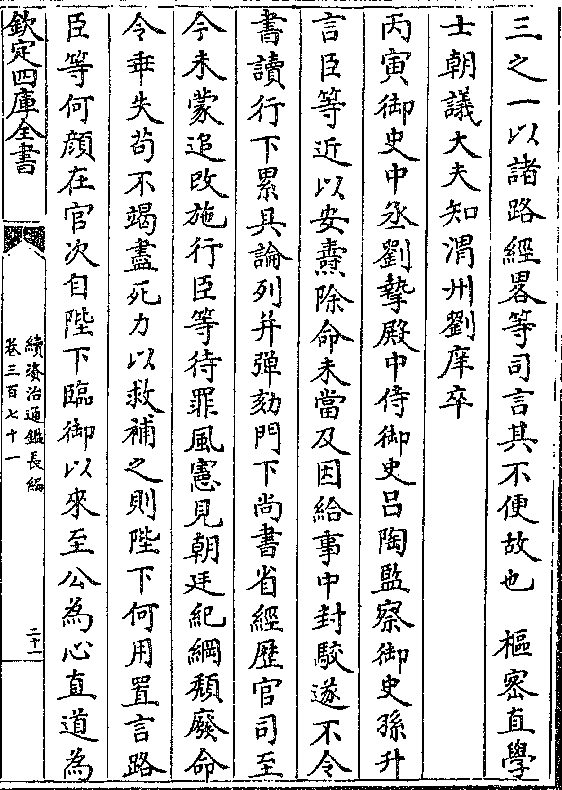 三之一以諸路經畧等司言其不便故也　樞密直學
士朝議大夫知渭州劉庠卒
丙寅御史中丞劉摯殿中侍御史吕陶監察御史孫升
言臣等近以安燾除命未當及因給事中封駮遂不令
書讀行下累具論列并彈劾門下尚書省經歷官司至
今未蒙追改施行臣等待罪風憲見朝廷紀綱頽廢命
令乖失苟不竭盡死力以救補之則陛下何用置言路
臣等何顔在官次自陛下臨御以來至公為心直道為
欽定四庫全書
續資治通鑑長編
卷三百七十一
二十一